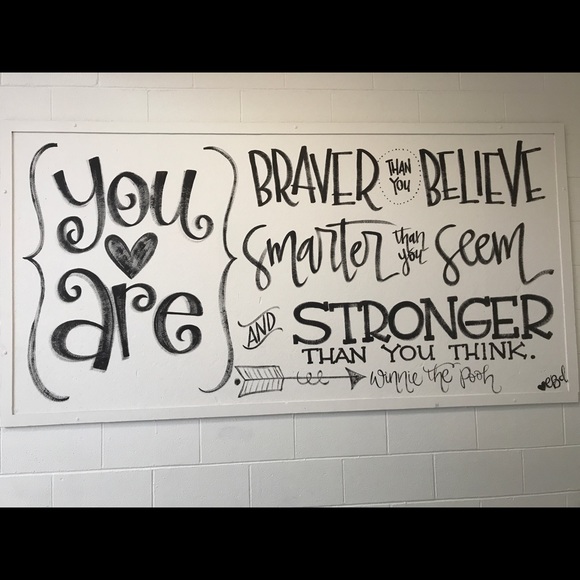 you
are
BRAVER THAN YOU BELIEVE
smarter than you seem
AND STRONGER
THAN YOU THINK.
winnie the pooh